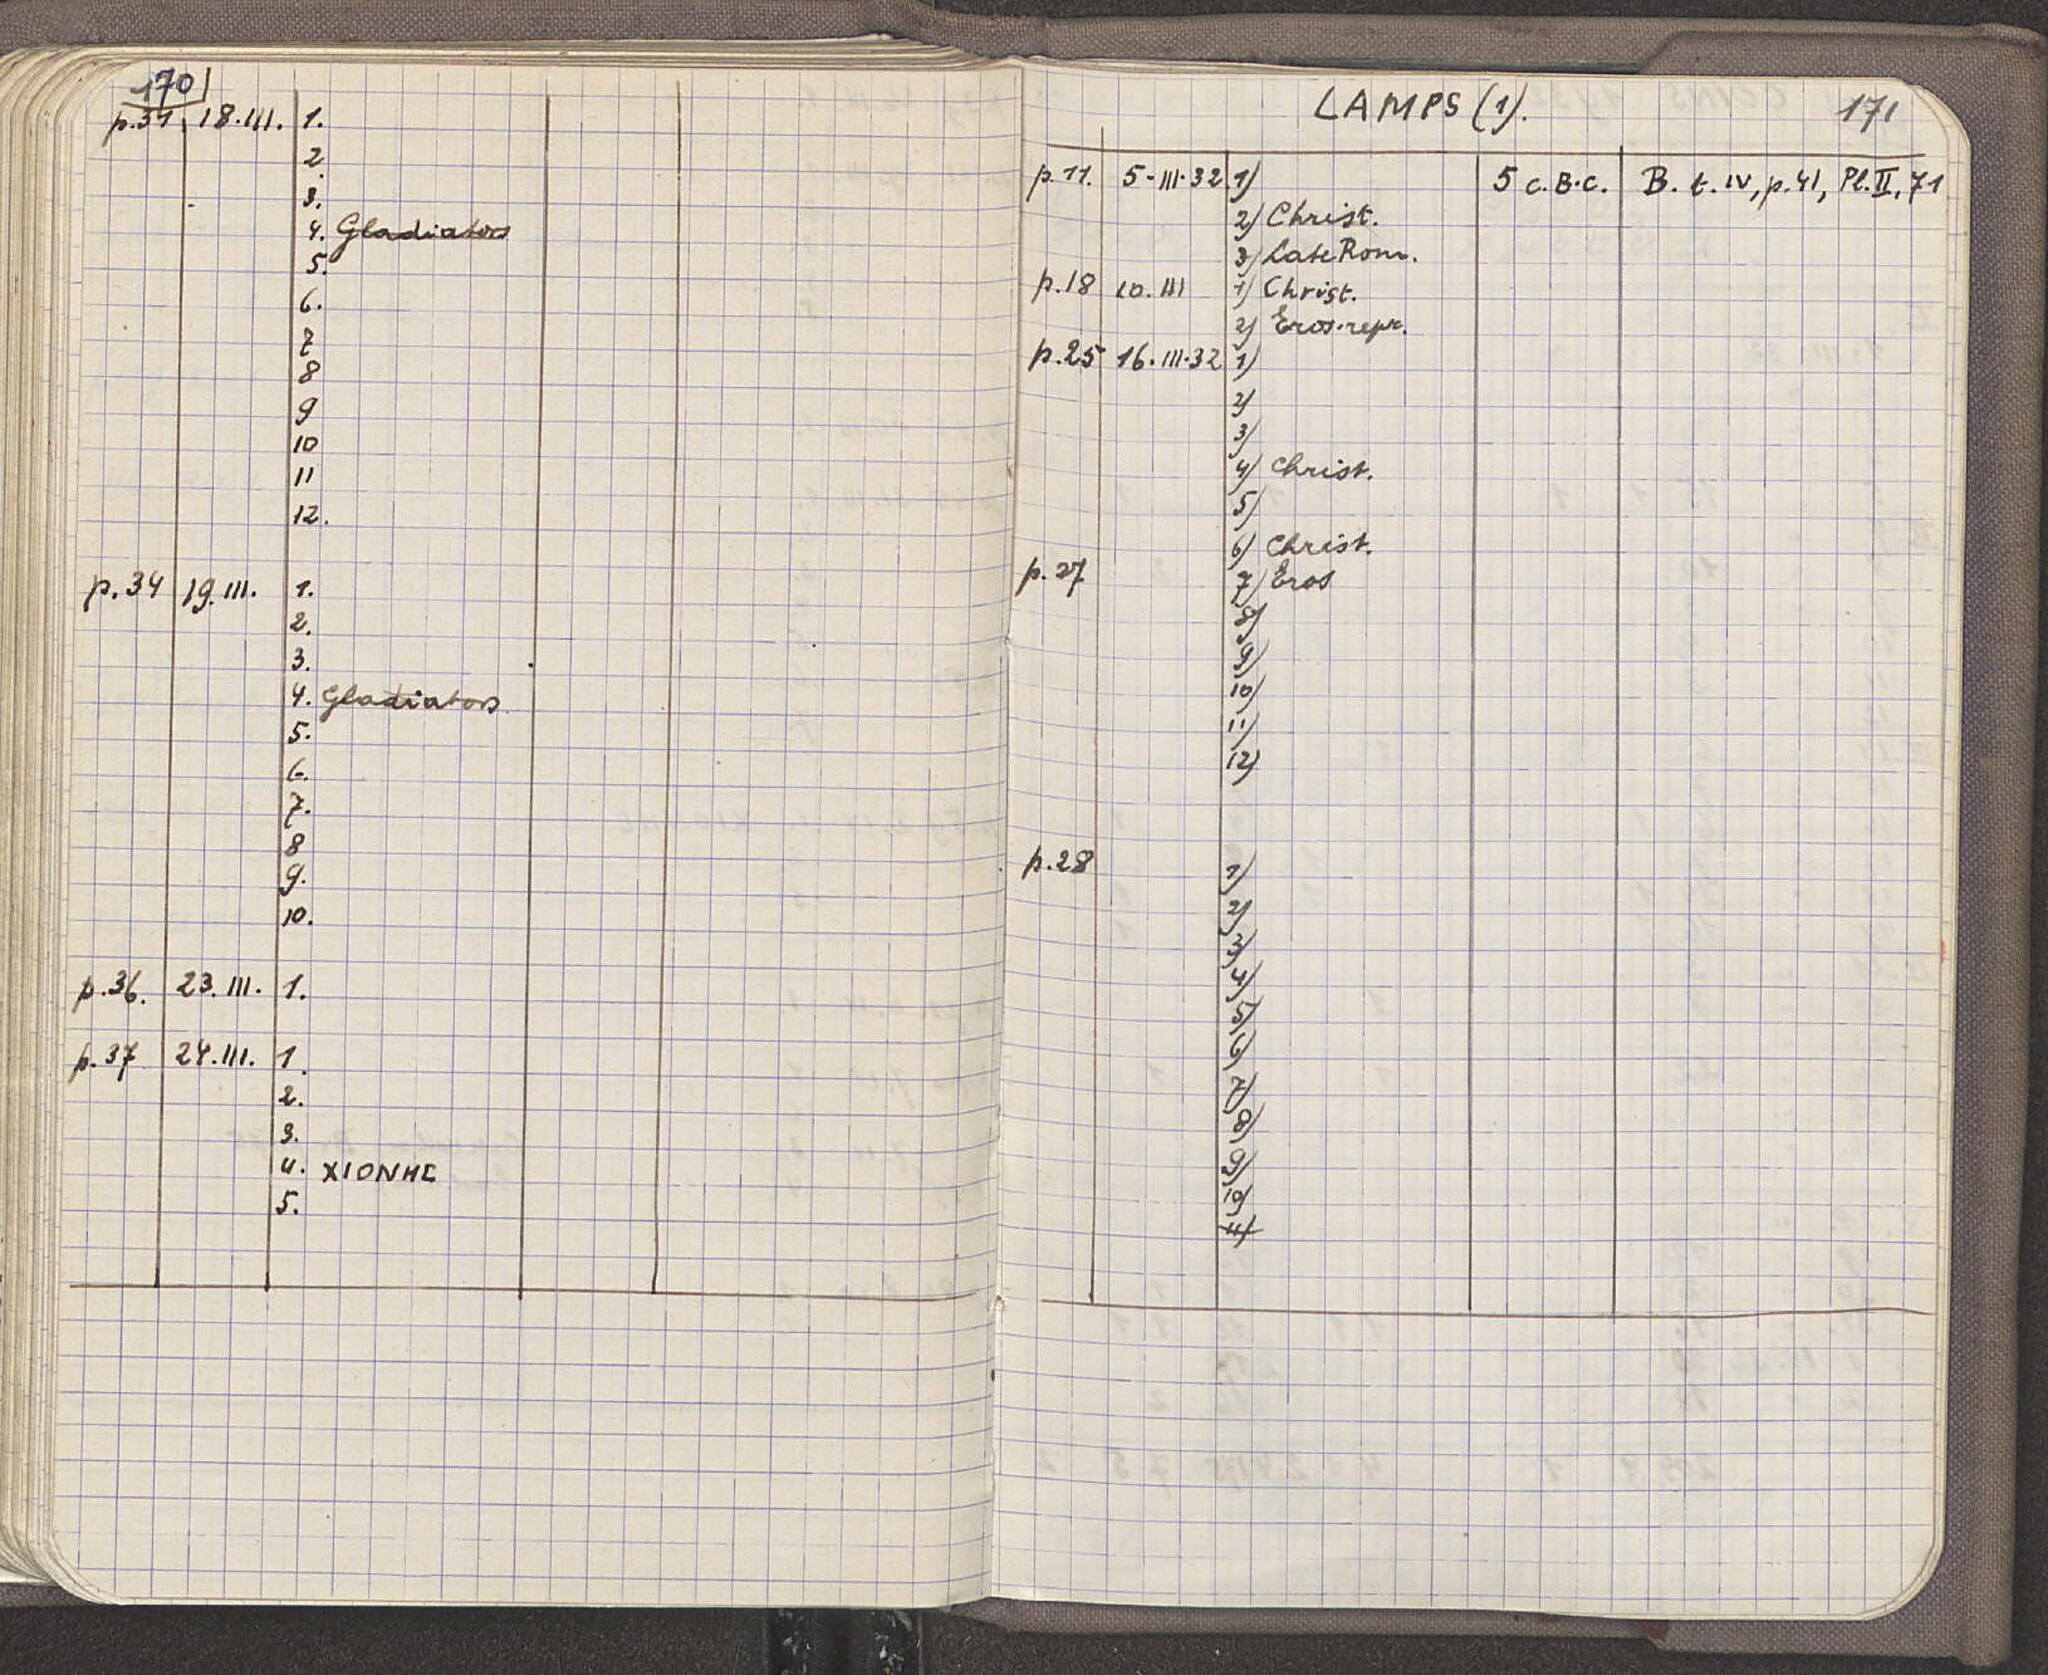 170
p.31 18.III. 1.
2.
3.
4. Gladiators
5.
6.
7
8
9
10
11
12.
p.34 19.III. 1.
2.
3.
4. Gladiators
5.
6.
7.
8
9.
10.
p.36. 23.III. 1.
p.37 24.III. 1.
2.
3.
4. ΧΙΟΝΗC
5.
LAMPS (1). 171
p.11. 5-III-32 1) 5 c. B.C. B. t. IV, p.41, Pl. II, 71
2) Christ.
3) Late Rom.
p.18 10.III 1) Christ.
2) Eros-repr.
p.25 16.III.32 1)
2)
3)
4) Christ.
5)
6) Christ.
p.27 7) Eros
8)
9)
10)
11)
12)
p.28 1)
2)
3)
4)
5)
6)
7)
8)
9)
10)
11)